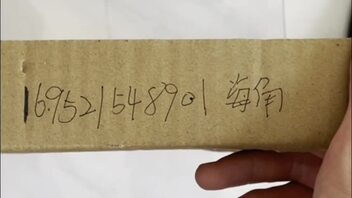 169521548901 海角